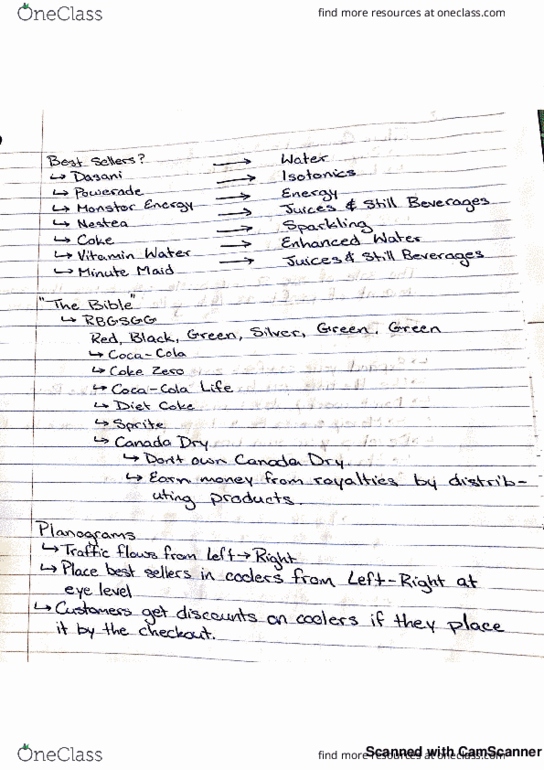 OneClass
find more resources at oneclass.com
Best Sellers?
↳ Dasani → Water
↳ Powerade → Isotonics
↳ Monstor Energy → Energy
↳ Nestea → Juices & Still Beverages
↳ Coke → Sparkling
↳ Vitamin Water → Enhanced Water
↳ Minute Maid → Juices & Still Beverages
"The Bible"
↳ RBGSGG
Red, Black, Green, Silver, Green, Green
↳ Coca-Cola
↳ Coke Zero
↳ Coca-Cola Life
↳ Diet Coke
↳ Sprite
↳ Canada Dry
↳ Don't own Canada Dry
↳ Earn money from royalties by distrib-
uting products.
Planograms
↳ Traffic flows from Left → Right
↳ Place best sellers in coolers from Left-Right at
eye level
↳ Customers get discounts on coolers if they place
it by the checkout.
OneClass
find more resources at oneclass.com
Scanned with CamScanner